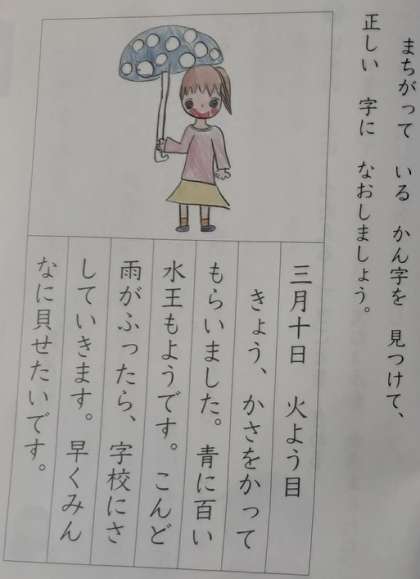 まちがって いる かん字を 見つけて、
正しい 字に なおしましょう。
三月十日 火よう目
きょう、かさをかって
もらいました。青に百い
水王もようです。こんど
雨がふったら、字校にさ
していきます。早くみん
なに貝せたいです。